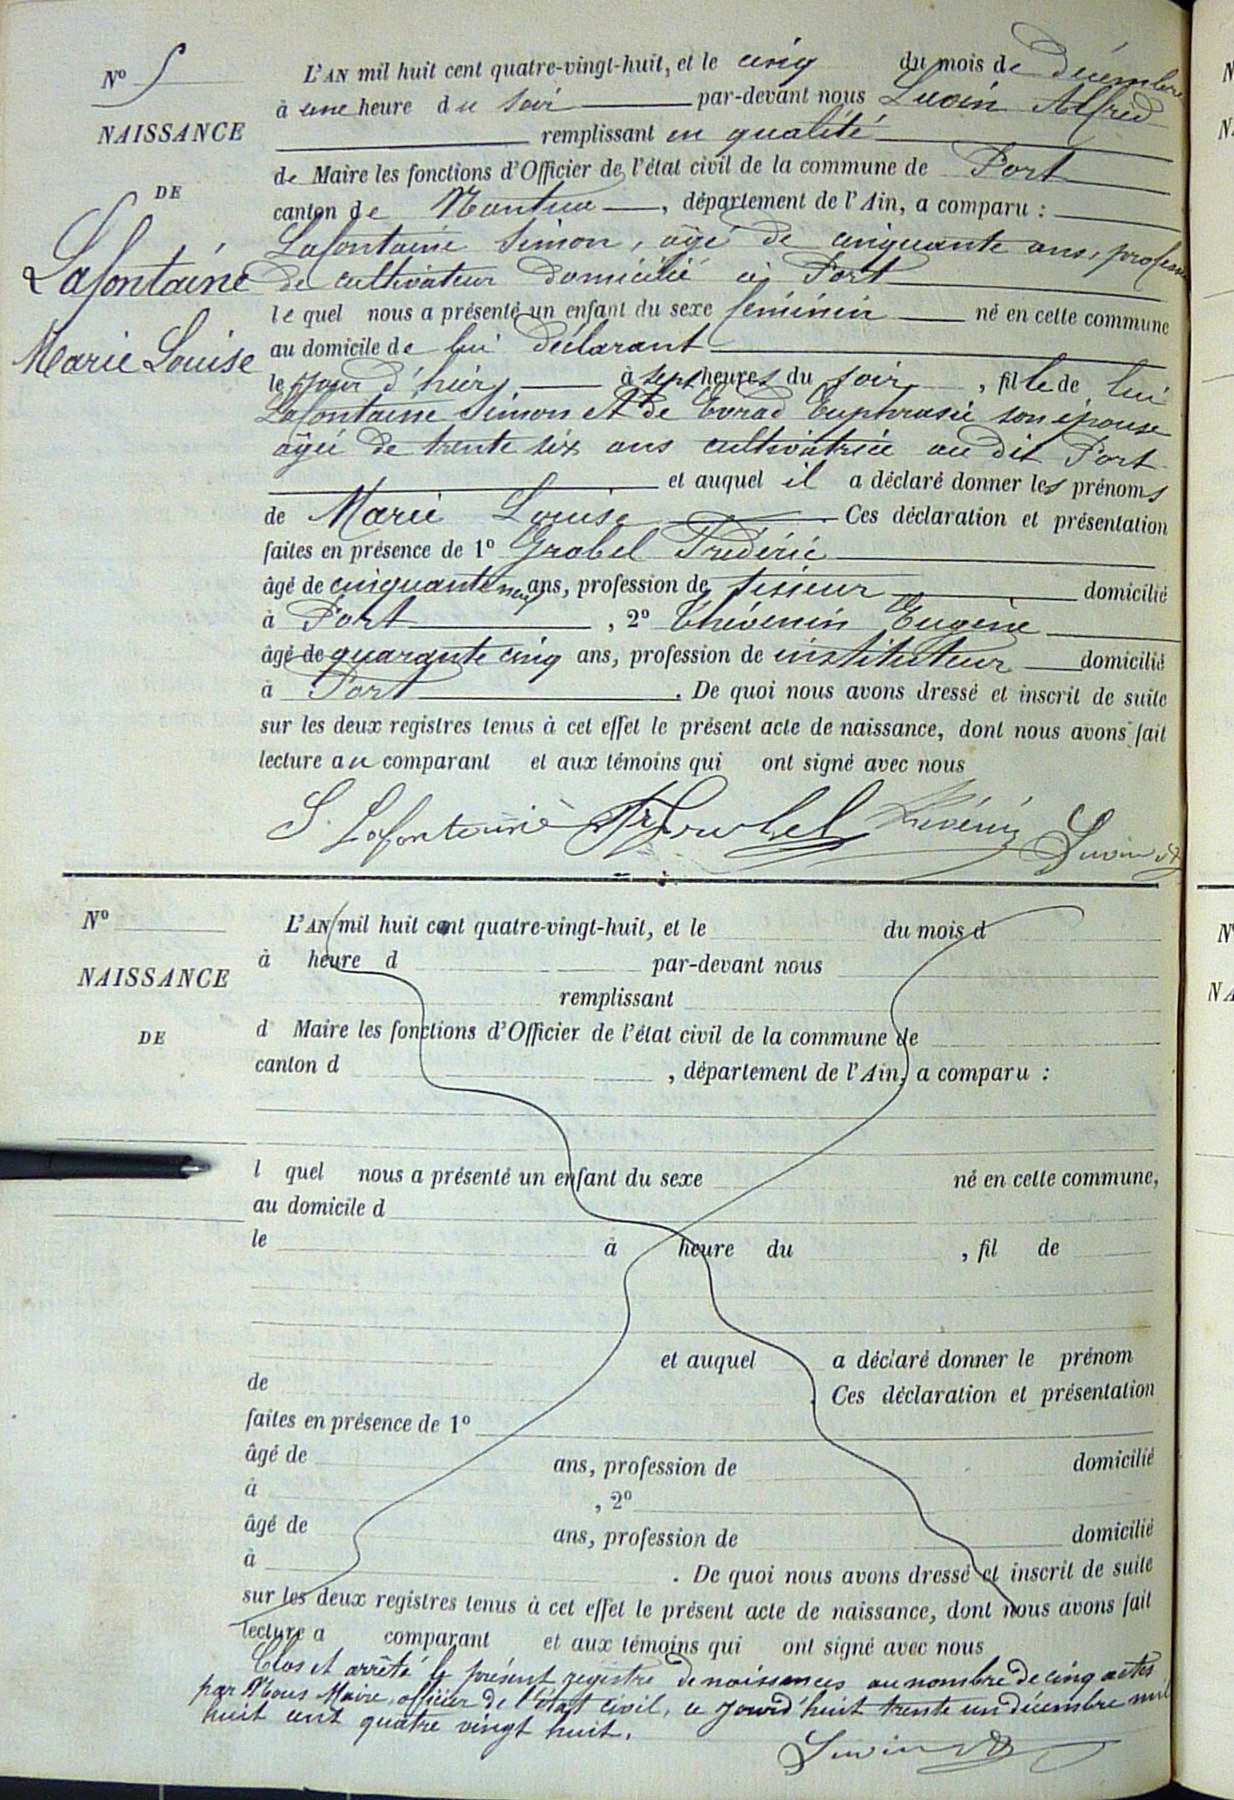 N° 5
NAISSANCE
DE
Lafontaine
Marie Louise
L'AN mil huit cent quatre-vingt-huit, et le cinq du mois de décembre
à une heure du soir par-devant nous Alfred
remplissant en qualité
de Maire les fonctions d'Officier de l'état civil de la commune de Port
canton de Nantua, département de l'Ain, a comparu :
Lafontaine Simon, âgé de cinquante ans, profession
de cultivateur domicilié à Port
le quel nous a présenté un enfant du sexe féminin né en cette commune
au domicile de lui déclarant
le jour d'hier à sept heures du soir, fille de lui
Lafontaine Simon et de Evrad Euphrasie son épouse
âgée de trente six ans cultivatrice au dit Port
et auquel il a déclaré donner les prénoms
de Marie Louise. Ces déclaration et présentation
faites en présence de 1° Grobel Frédéric
âgé de cinquante neuf ans, profession de tisseur domicilié
à Port, 2° Thévenin Eugène
âgé de quarante cinq ans, profession de instituteur domicilié
à Port. De quoi nous avons dressé et inscrit de suite
sur les deux registres tenus à cet effet le présent acte de naissance, dont nous avons fait
lecture au comparant et aux témoins qui ont signé avec nous
S. Lafontaine
N°
NAISSANCE
DE
L'AN mil huit cent quatre-vingt-huit, et le du mois d
à heure d par-devant nous
remplissant
d Maire les fonctions d'Officier de l'état civil de la commune de
canton d , département de l'Ain, a comparu :
l quel nous a présenté un enfant du sexe né en cette commune,
au domicile d
le à heure du , fil de
et auquel a déclaré donner le prénom
de . Ces déclaration et présentation
faites en présence de 1°
âgé de ans, profession de domicilié
à , 2°
âgé de ans, profession de domicilié
à . De quoi nous avons dressé et inscrit de suite
sur les deux registres tenus à cet effet le présent acte de naissance, dont nous avons fait
lecture a comparant et aux témoins qui ont signé avec nous
Clos et arrêté le présent registre de naissances au nombre de cinq actes
par Nous Maire, officier de l'état civil, ce jourd'huit trente un décembre mil
huit cent quatre vingt huit.
N
N
N°
NA